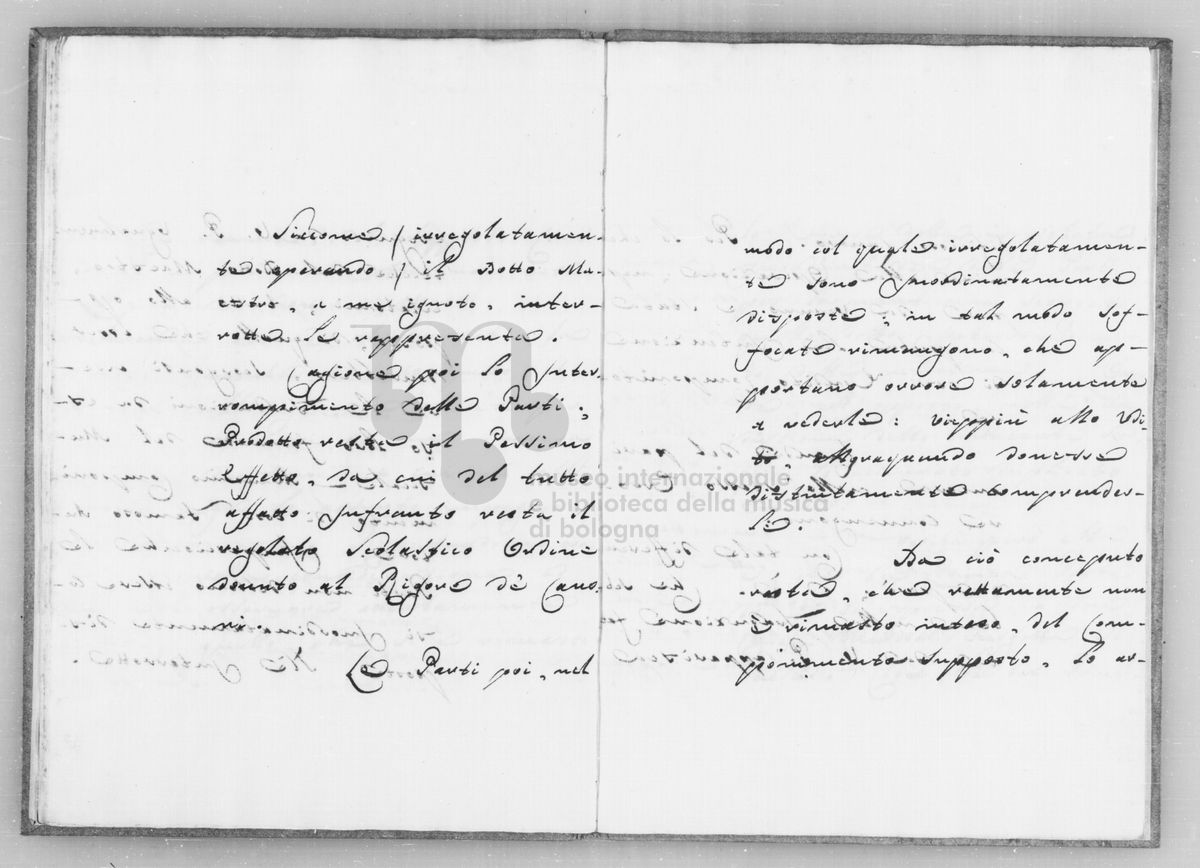 Siccome / irregolatamen-
te operando / il Dotto Ma-
estro, a me ignoto, inter-
rotte le rappresenta.
Cagione poi lo Inter-
rompimento delle Parti;
Prodotto resta il Pessimo
Effetto, da cui del tutto
affatto Infranto resta il
regolato Scolastico Ordine
dovuto al Rigore dè Cano-
ni.
Le Parti poi, nel
modo col quale irregolatamen-
te sono Inordinatamente
disposte; in tal modo sof-
focate rimangono, che ap-
portano orrore solamente
a vederle: vieppiù allo Udi-
to, allora quando dovesse
distintamente comprender-
le.
Da ciò conceputo
resta, che rettamente non
è rimasto inteso, del Com-
ponimento supposto, lo ar-
museo internazionale
e biblioteca della musica
di bologna